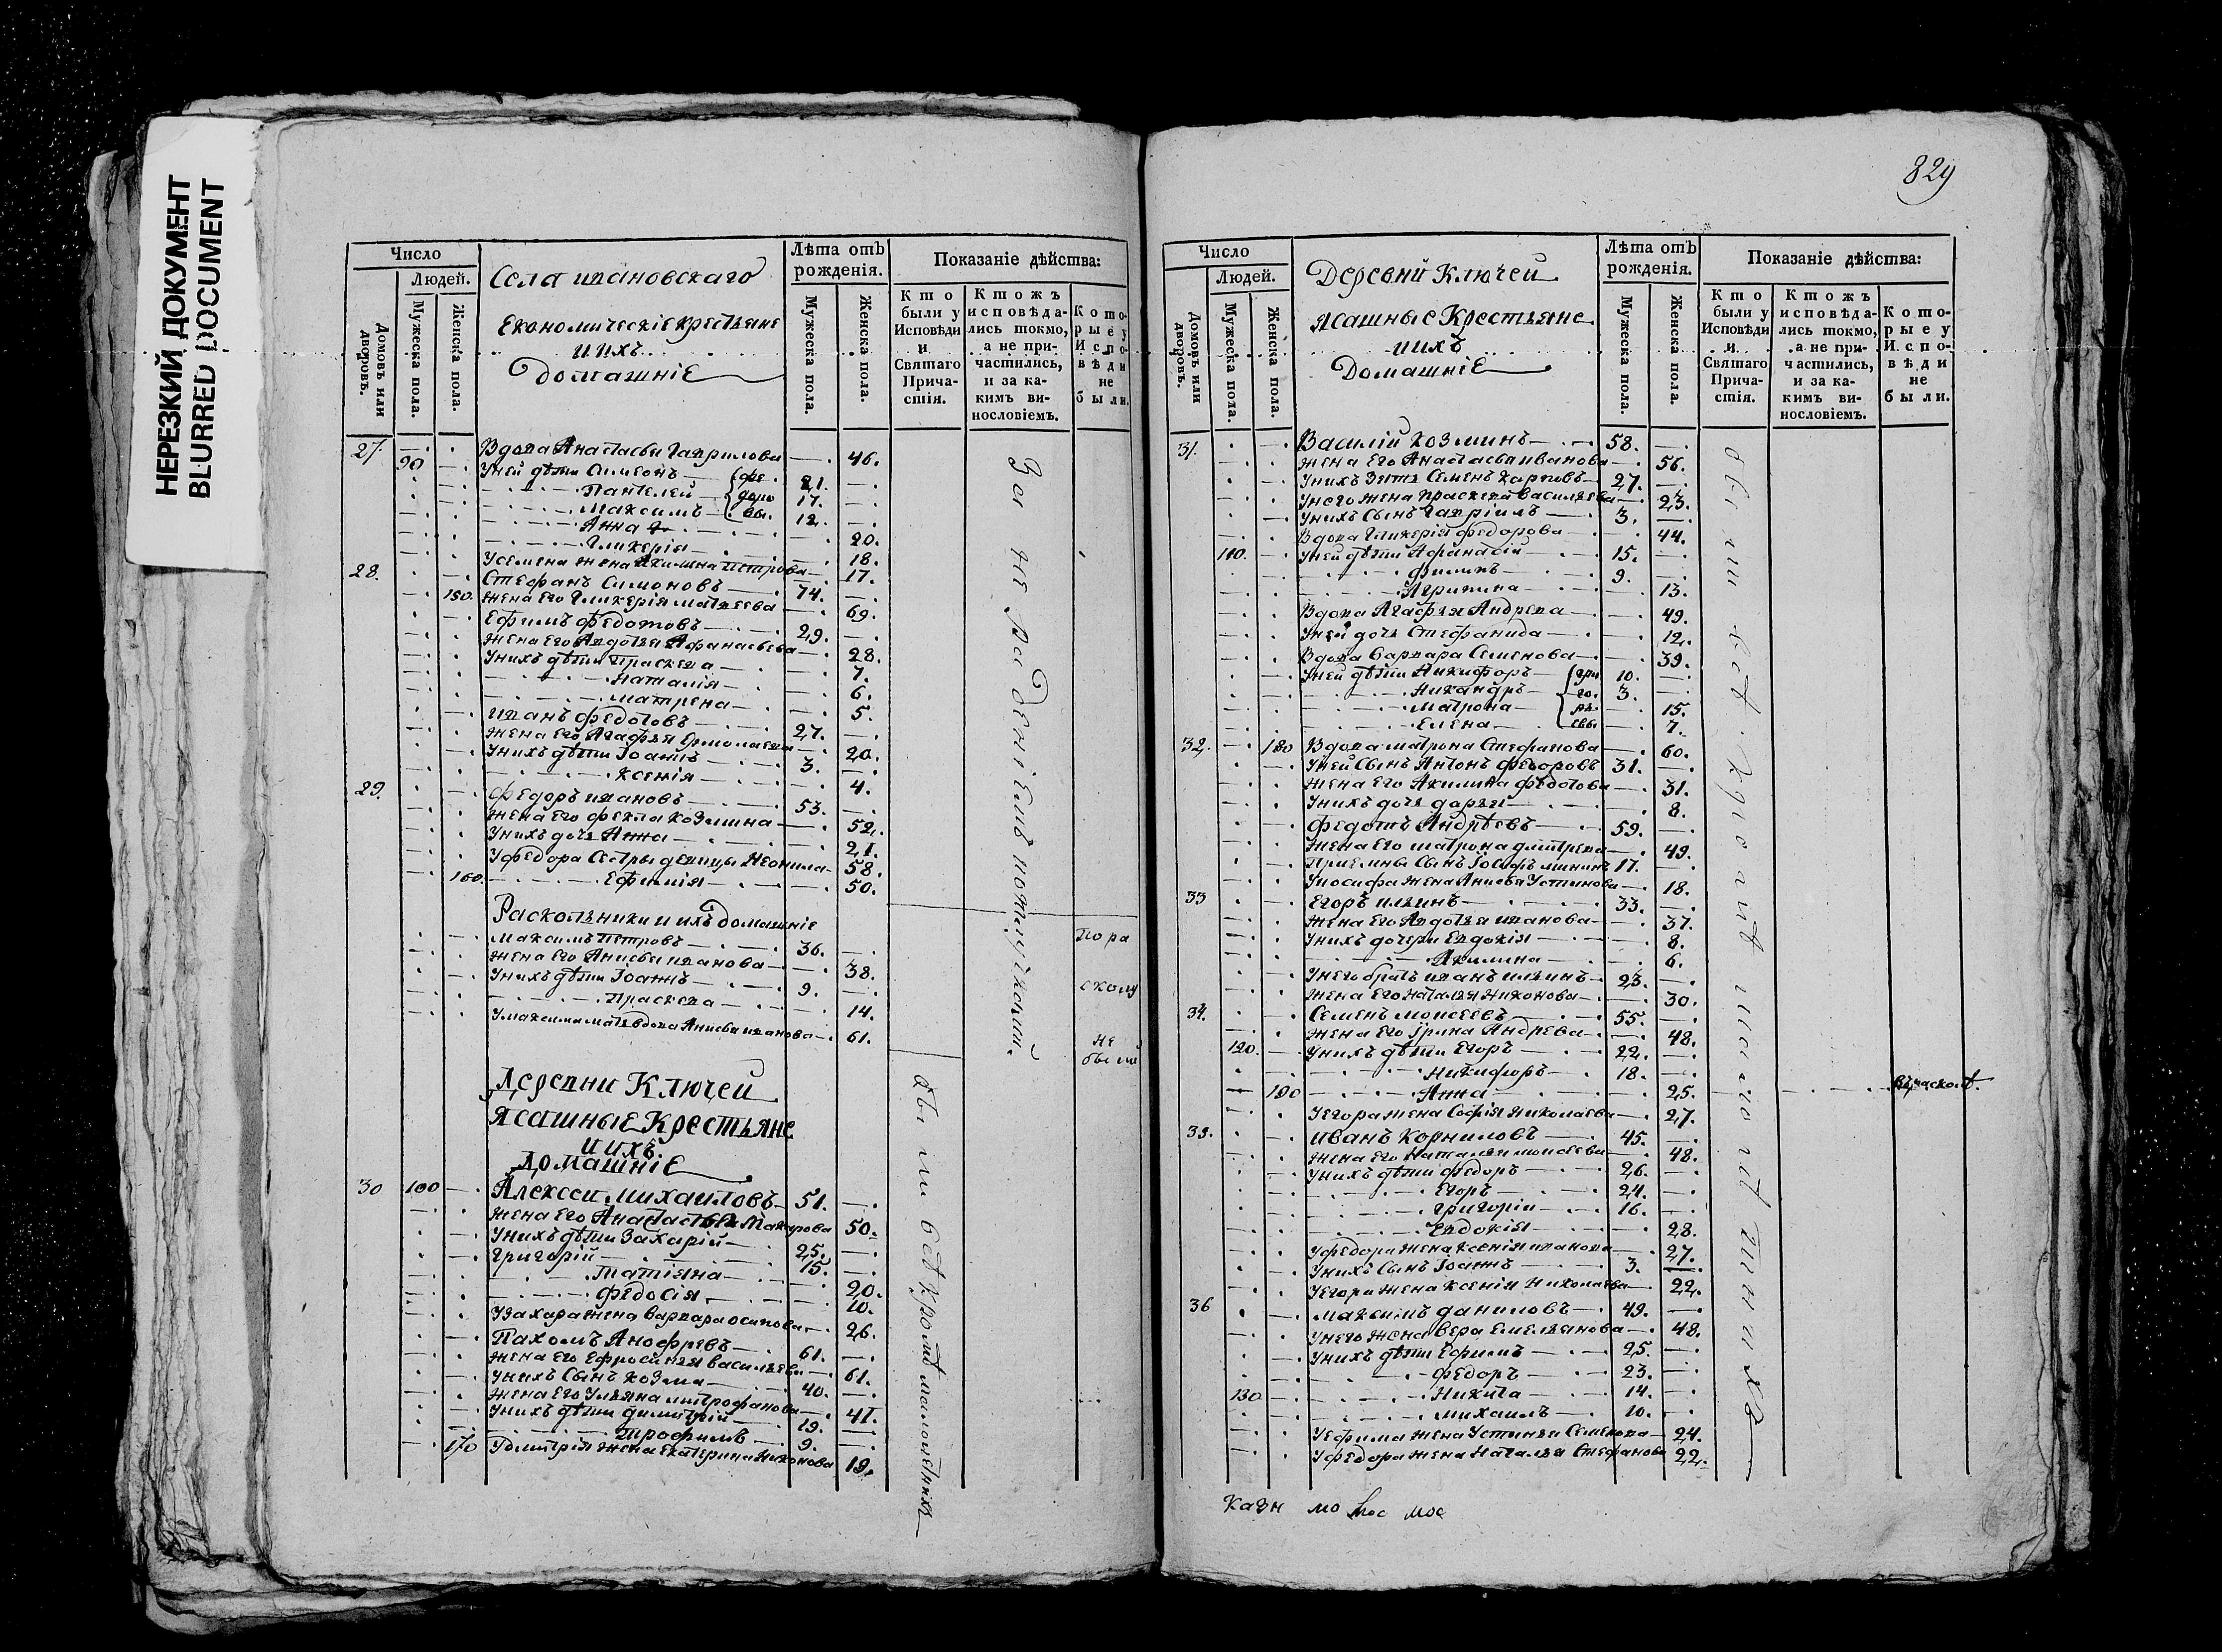 НЕРЕЗКИЙ ДОКУМЕНТ
BLURRED DOCUMENT
Число
Людей.
Домовъ или дворовъ.
Мужеска пола.
Женска пола.
Села ивановскаго
Економическіе крестьяне
и ихъ
домашніе
Лѣта отъ рожденія.
Мужеска пола.
Женска пола.
Показаніе дѣйства:
Кто были у Исповѣди и Святаго Причастія.
Ктожъ исповѣдались токмо, а не причастились, и за какимъ винословіемъ.
Которые у Исповѣди не были.
27. Вдова Анастасья Гаврилова 46.
90 У ней дѣти Симеонъ 21.
Пантелей 17.
Максимъ 12.
Анна 20.
Гликерія 18.
У семена жена Акилина петрова 17.
28. Стефанъ Симоновъ 74.
150. жена его Гликерія матвеева 69.
Ефимъ федотовъ 29.
жена его Авдотья Афанасьева 28.
У нихъ дѣти Праскева 7.
наталія 6.
матрена 5.
иванъ федотовъ 27.
жена его Агафья Ермолаева 20.
У нихъ дѣти Іоаннъ 3.
ксенія 4.
29. федоръ ивановъ 53.
жена его фекла козмина 52.
У нихъ дочь Анна 21.
У федора сестры девицы Неонила 58.
160. Ефимія 50.
Раскольники и ихъ домашніе
максимъ петровъ 36.
жена его Анисья иванова 38.
У нихъ дѣти Іоаннъ 9.
Праскева 14.
У максима мать вдова Анисья иванова 61.
По ра
сколу
не
были
Деревни Ключей
ясашные Крестьяне
и ихъ
домашніе
30 100 Алексеи михаиловъ 51.
жена его Анастасья Макарова 50.
У нихъ дѣти Захарій 25.
григорій 15.
татіяна 20.
федосія 10.
У захара жена варвара осипова 26.
Пахомъ Анофревъ 61.
жена его Ефросинья васильева 61.
У нихъ сынъ козма 40.
жена его Ульяна митрофанова 41.
У нихъ дѣти димитрій 19.
трофимъ 9.
170 У дмитрія жена екатерина Никонова 19.
были всѣ кромѣ малолѣтнихъ
829
Число
Людей.
Домовъ или дворовъ.
Мужеска пола.
Женска пола.
Деревни Ключеи
ясашные Крестьяне
и ихъ
Домашніе
Лѣта отъ рожденія.
Мужеска пола.
Женска пола.
Показаніе дѣйства:
Кто были у Исповѣди и Святаго Причастія.
Ктожъ исповѣдались токмо, а не причастились, и за какимъ винословіемъ.
Которые у Исповѣди не были.
31. Василій козминъ 58.
жена его Анастасья иванова 56.
У нихъ Зять Семенъ карповъ 27.
У него жена праскева васильева 23.
У нихъ сынъ Гавріилъ 3.
Вдова Гликерія федорова 44.
110. У ней дѣти Афанасій 15.
филипъ 9.
Агрипина 13.
Вдова Агафья Андрева 49.
У ней дочь Стефанида 12.
Вдова варвара Семенова 39.
У ней дѣти Никифоръ 10.
Никандръ 3.
матрона 15.
Елена 7.
32. 180 Вдова матрона Стефанова 60.
У ней сынъ Антонъ федоровъ 31.
жена его Акилина федотова 31.
У нихъ дочь дарья 8.
федотъ Андрѣевъ 59.
жена его матрона дмитрева 49.
Приемны сынъ Іосифъ мининъ 17.
У иосифа жена Анисья Устинова 18.
33 Егоръ ильинъ 33.
жена его Авдотья иванова 37.
У нихъ дочери Евдокія 8.
Акилина 6.
У него братъ иванъ ильинъ 23.
жена его наталья Никонова 30.
34. Семенъ моисеевъ 55.
жена его Ірина Андрева 48.
120. У нихъ дѣти Егоръ 22.
Никифоръ 18.
190 Анна 25.
У егора жена Софія николаева 27.
35. иванъ корниловъ 45.
жена его наталья моисеева 48.
У нихъ дѣти федоръ 26.
Егоръ 24.
григоріи 16.
Евдокія 28.
У федора жена ксенія иванова 27.
У нихъ сынъ Іоаннъ 3.
У егора жена ксенія николаева 22.
36 максимъ даниловъ 49.
У него жена вера емельянова 48.
У нихъ дѣти Ефимъ 25.
федоръ 23.
130 Никита 14.
михаилъ 10.
У ефима жена Устинья Семенова 24.
У федора жена Наталья Стефанова 22.
были всѣ кромѣ малолѣтнихъ